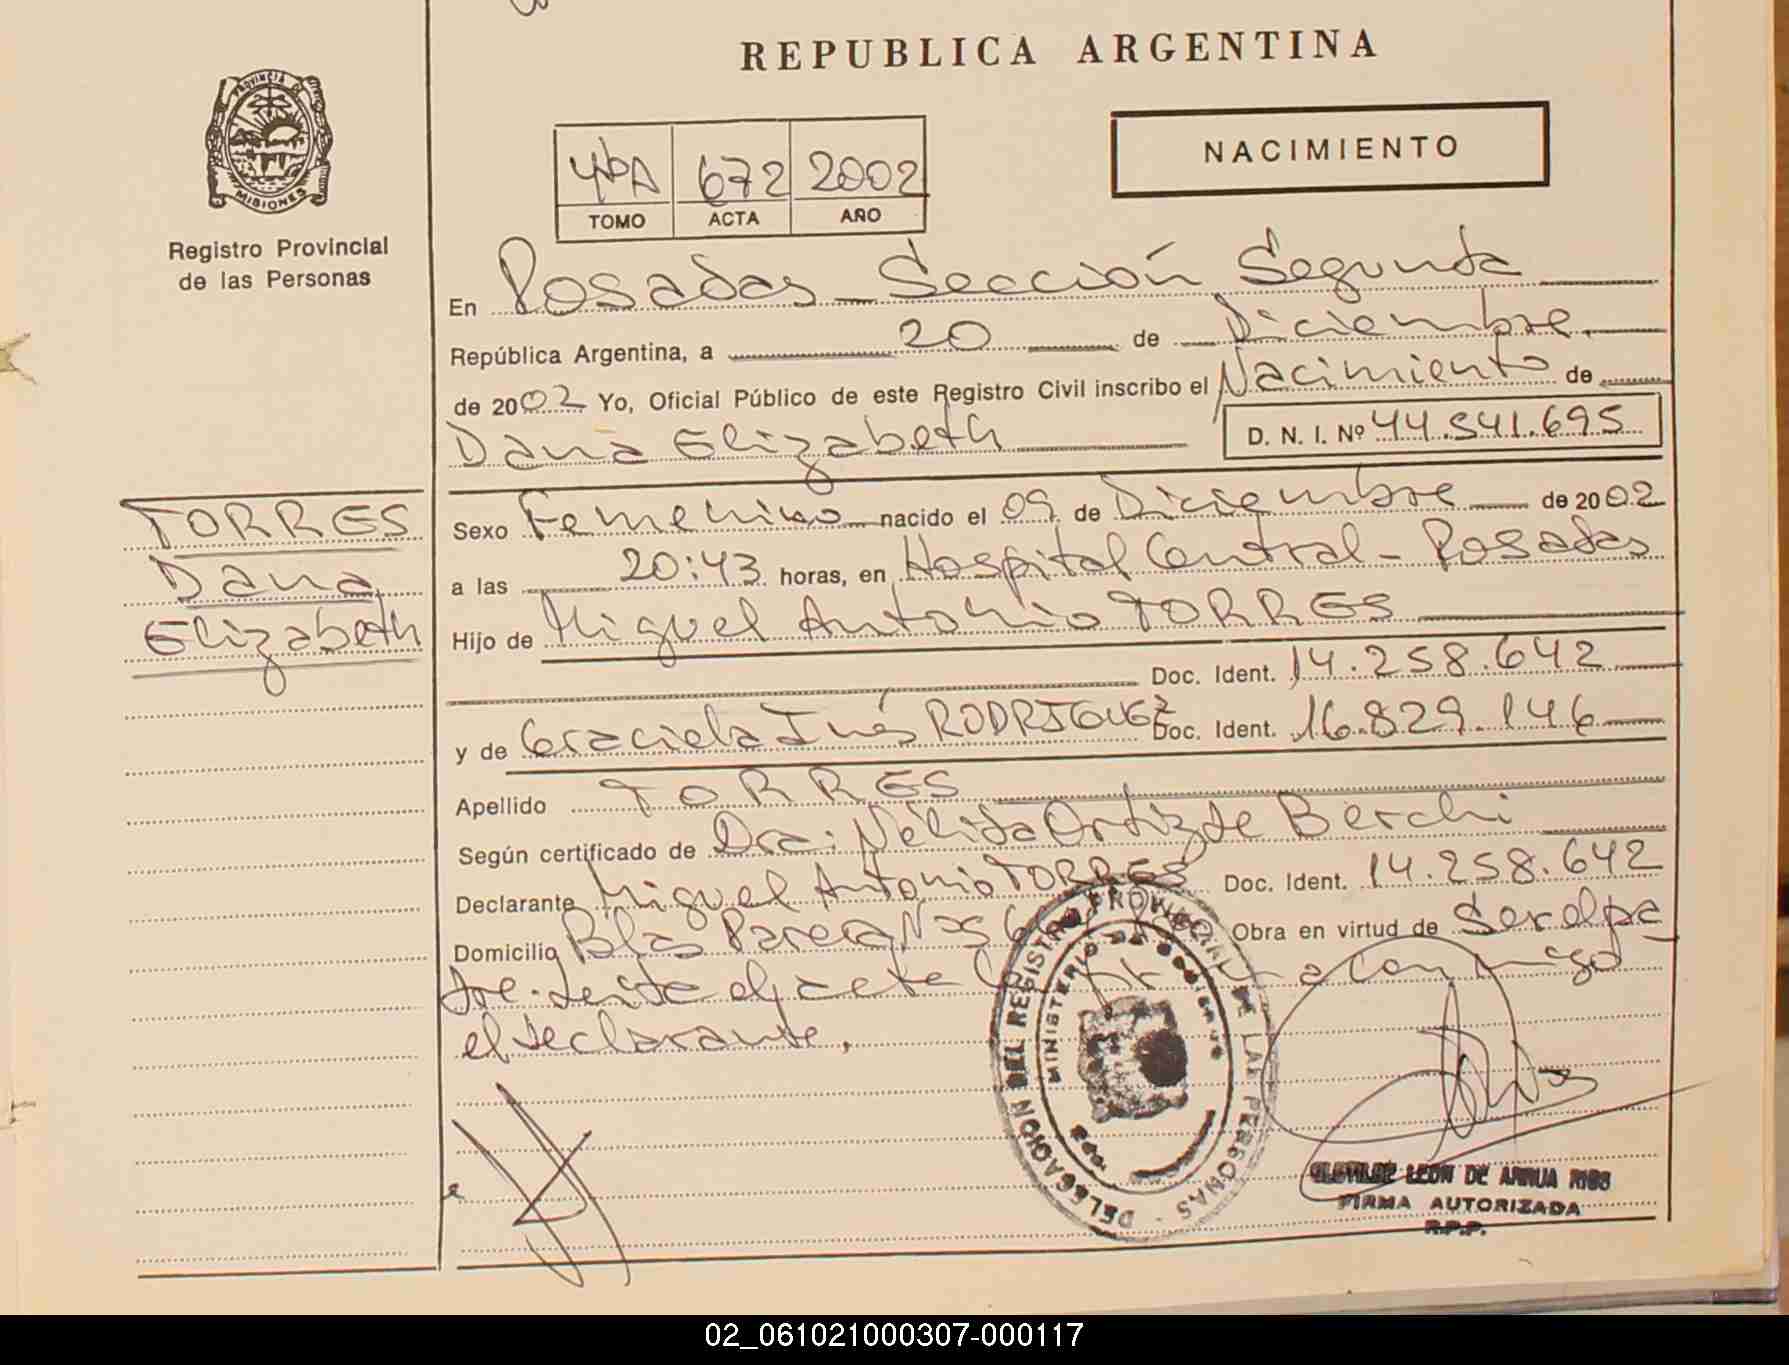 REPUBLICA ARGENTINA
PROVINCIA DE
MISIONES
Registro Provincial
de las Personas
NACIMIENTO
4bA 672 2002
TOMO ACTA AÑO
En Posadas Sección Segunda
República Argentina, a 20 de Diciembre.
de 2002 Yo, Oficial Público de este Registro Civil inscribo el Nacimiento de
Dana Elizabeth D. N. I. Nº 44.541.695
TORRES
Dana
Elizabeth
Sexo Femenino nacido el 09 de Diciembre de 2002
a las 20:43 horas, en Hospital Central - Posadas
Hijo de Miguel Antonio TORRES
Doc. Ident. 14.258.642
y de Graciela Inés RODRIGUEZ Doc. Ident. 16.829.146
Apellido TORRES
Según certificado de Dra: Nélida Ortiz de Berchi
Declarante Miguel Antonio TORRES Doc. Ident. 14.258.642
Domicilio Blas Parera Obra en virtud de Ser el pa
dre. el acta conmigo
el declarante.
DELEGACION DEL REGISTRO PROVINCIAL DE LAS PERSONAS
MINISTERIO DE GOBIERNO
LEON DE ARRUA RIOS
FIRMA AUTORIZADA
R.P.P.
02_061021000307-000117